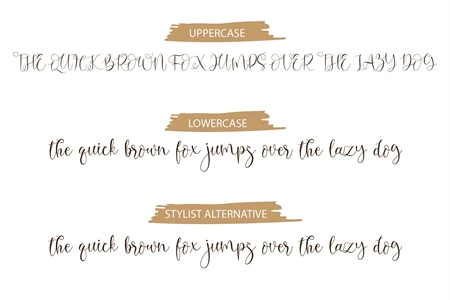 UPPERCASE
THE QUICK BROWN FOX JUMPS OVER THE LAZY DOG
LOWERCASE
the quick brown fox jumps over the lazy dog
STYLIST ALTERNATIVE
the quick brown fox jumps over the lazy dog